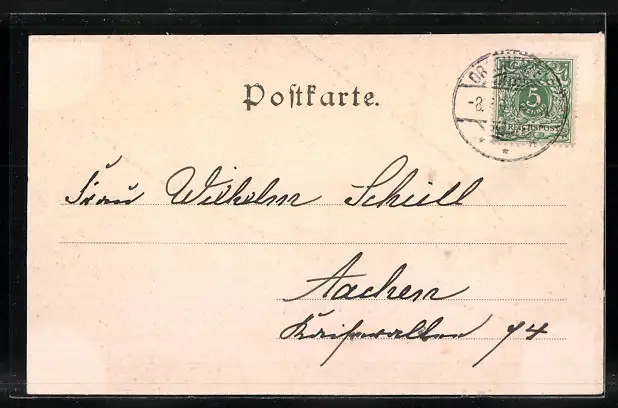 Postkarte.
5
REICHSPOST
-8.
Frau Wilhelm Schüll
Aachen
Kaiserallee 74